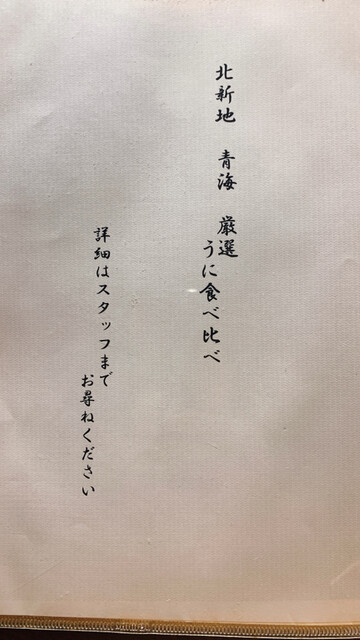 北新地　青海　厳選
うに食べ比べ
詳細はスタッフまで
お尋ねください